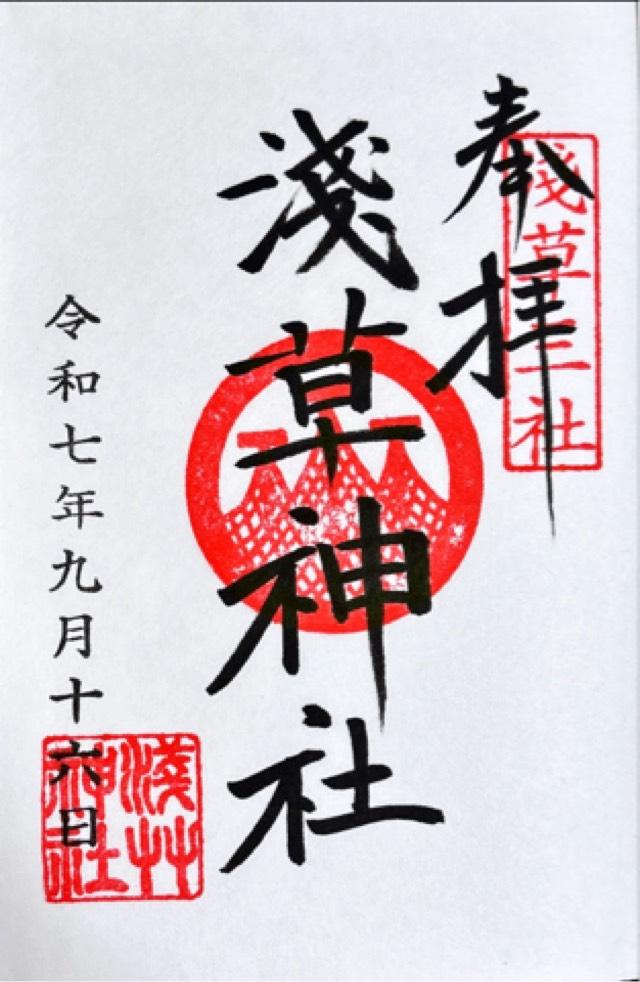 奉拝
淺草三社
淺草神社
令和七年九月十六日
淺草神社